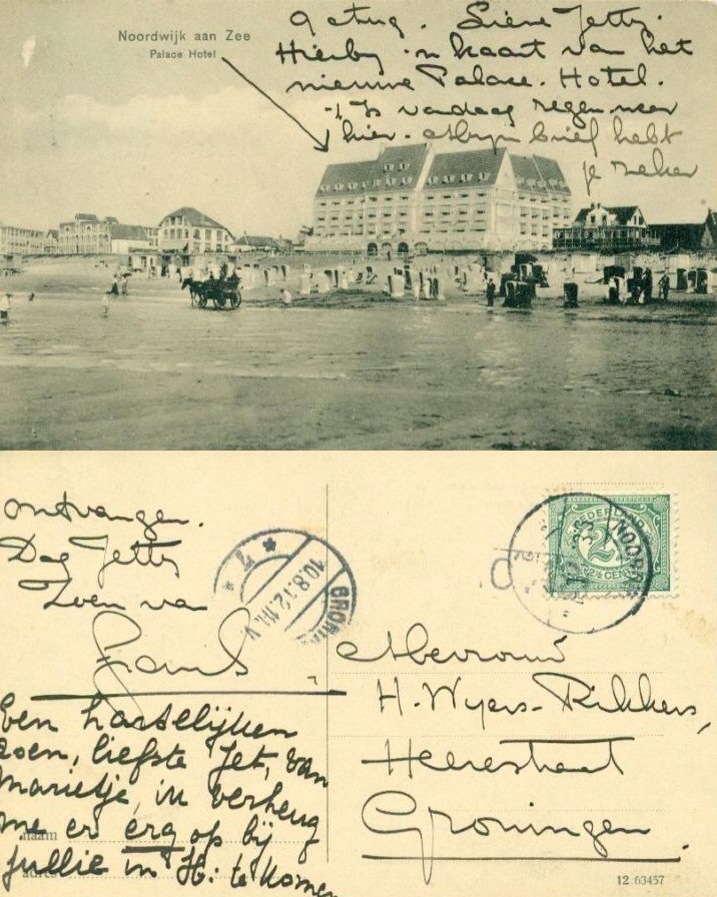 Noordwijk aan Zee
Palace Hotel
9 Aug. Lieve Jetty.
Hierbij 'n kaart van het
nieuwe Palace-Hotel.
't Is vandaag regen weer
hier. Mijn brief hebt
je zeker
ontvangen.
Dag Jetty
Zoen van
Frans
Een hartelijken
zoen, liefste Jet, van
Marietje, ik verheug
me er erg op bij
jullie in H. te komen
naam
adres
7
10.8.12.11.V
GRONI
NEDERLAND
2½ CENT
NOORD
Mevrouw
H. Wyers-Rikkers,
Heerestraat
Groningen.
12 63457